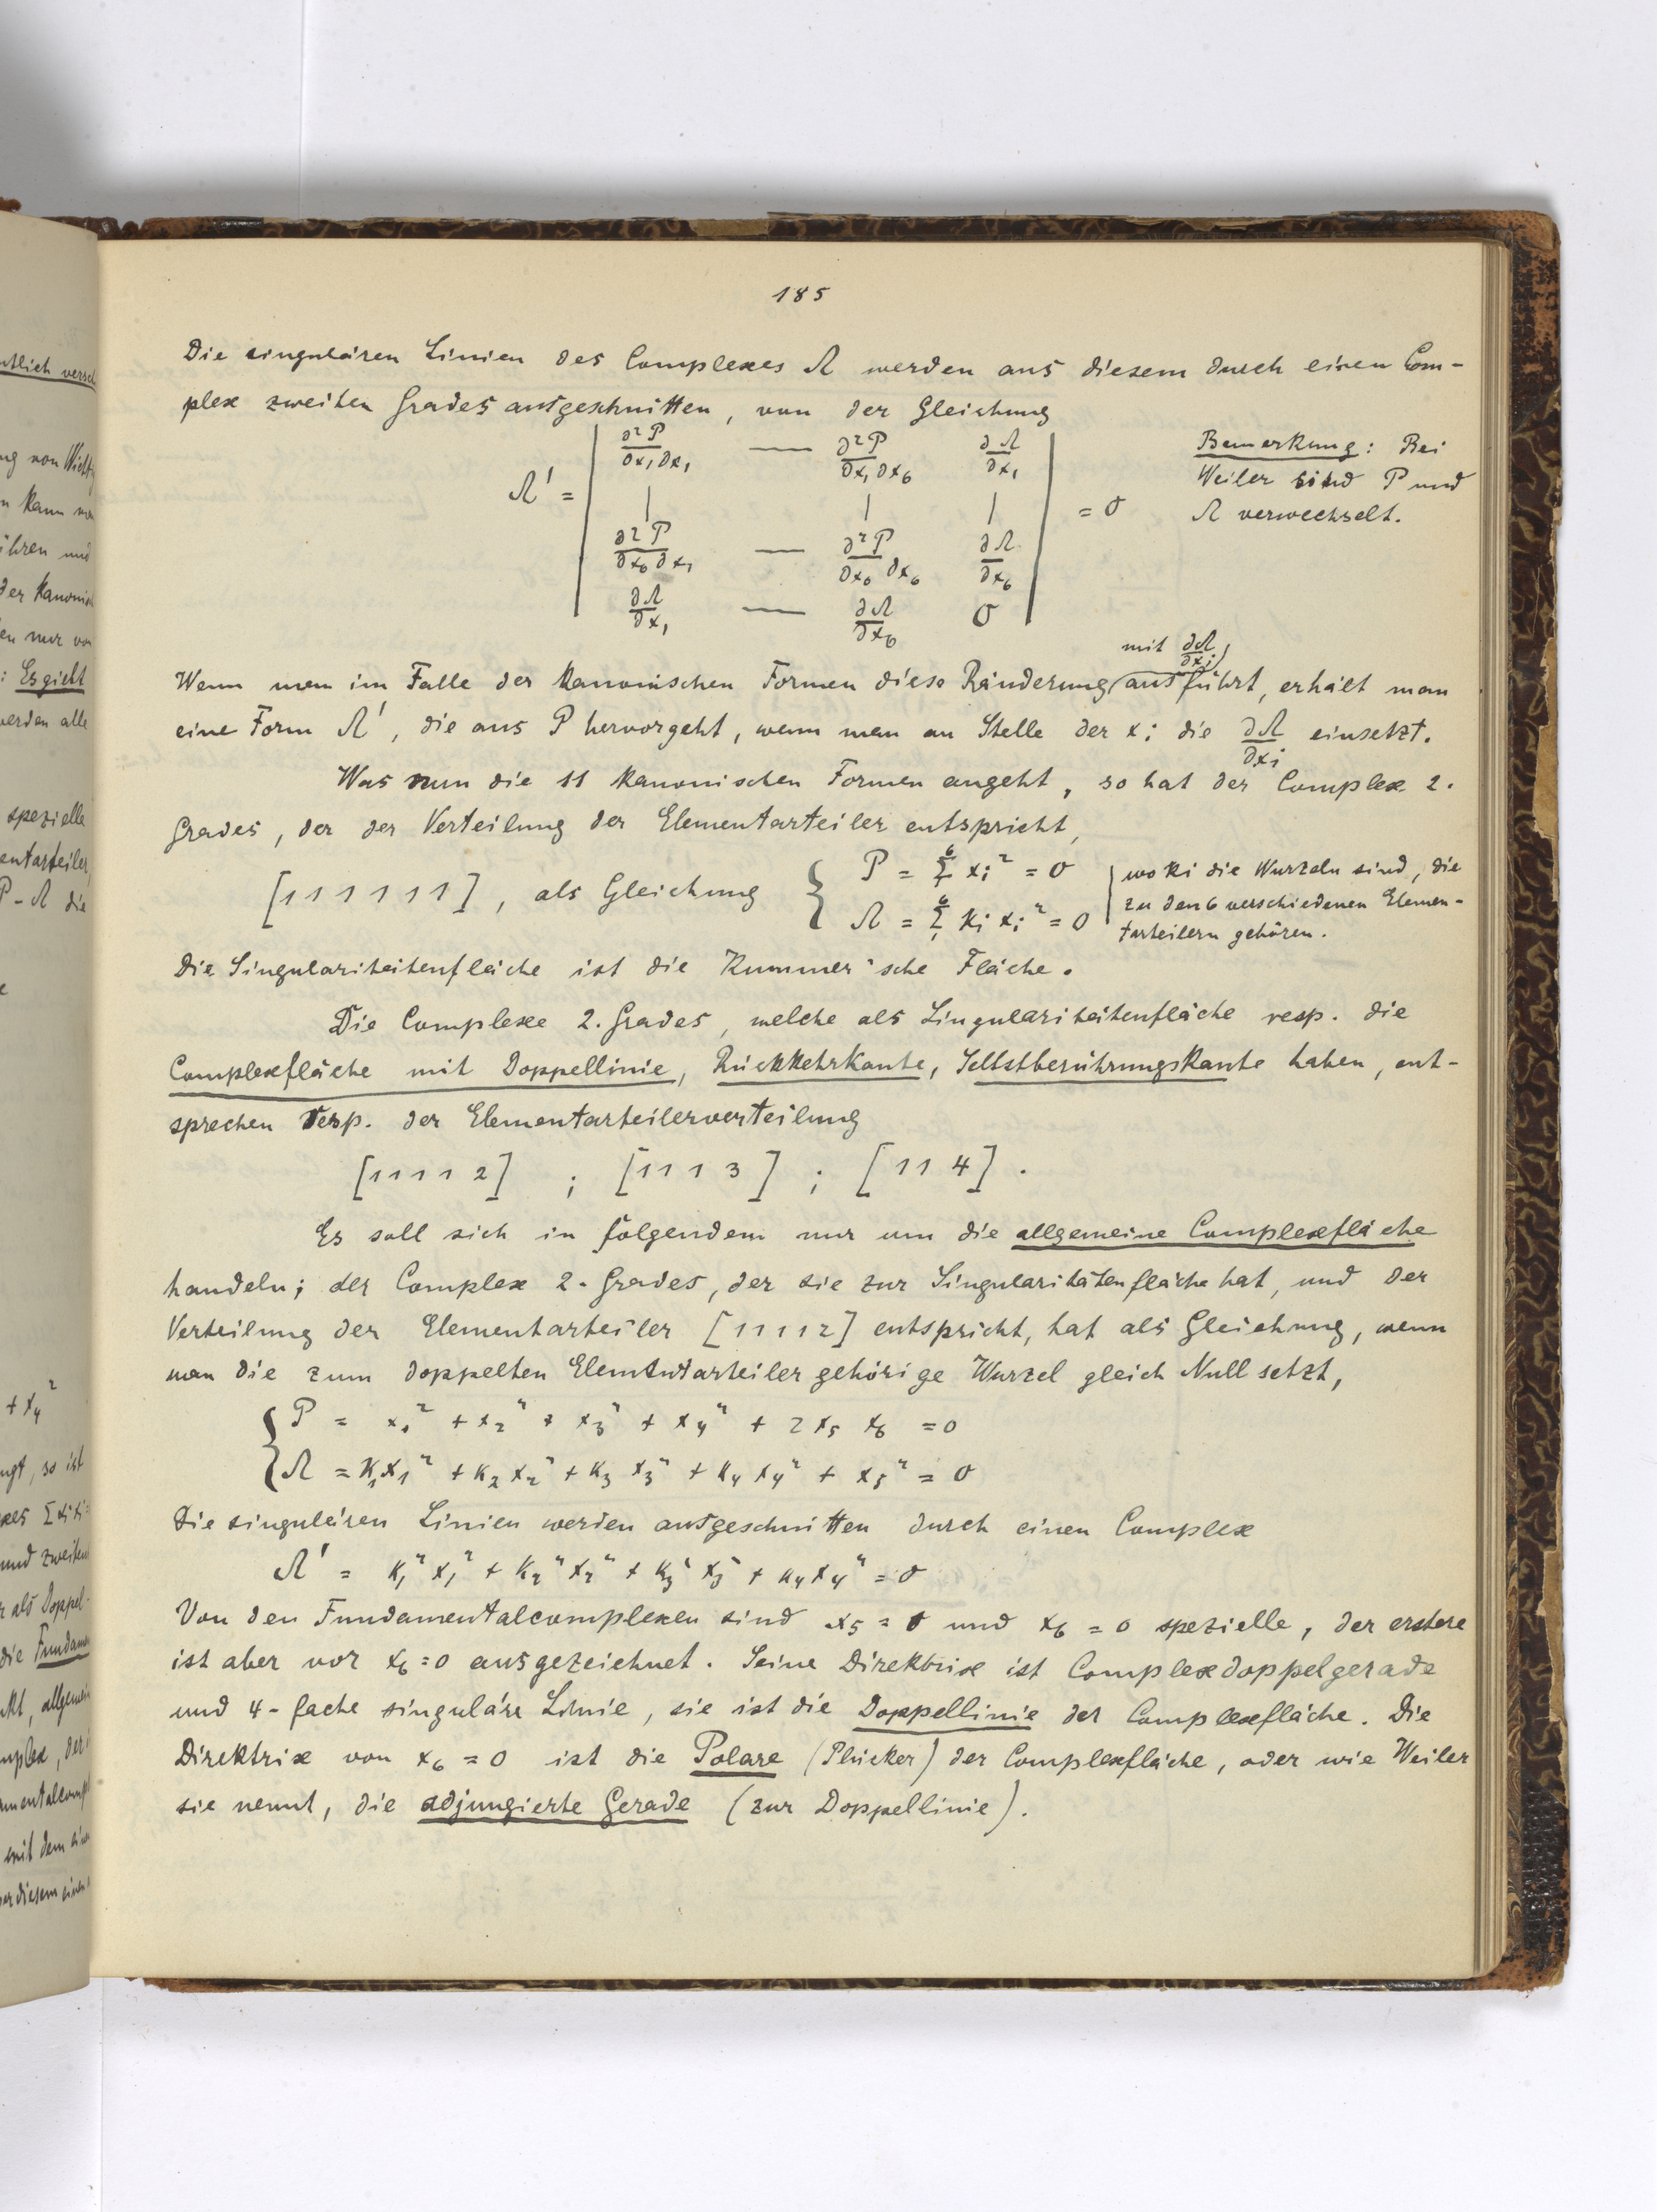 185
Die singulären Linien des Complexes Λ werden aus diesem durch einen Com-
plex zweiten Grades ausgeschnitten, von der Gleichung
Λ' = | ∂²P/∂x₁∂x₁ — ∂²P/∂x₁∂x₆ ∂Λ/∂x₁ |
| | | | | = 0
| ∂²P/∂x₆∂x₁ — ∂²P/∂x₆∂x₆ ∂Λ/∂x₆ |
| ∂Λ/∂x₁ — ∂Λ/∂x₆ 0 |
Bemerkung: Bei
Weiler sind P und
Λ verwechselt.
mit ∂Λ/∂xᵢ)
Wenn man im Falle der kanonischen Formen diese Ränderung (ausführt, erhält man
eine Form Λ', die aus P hervorgeht, wenn man an Stelle der xᵢ die ∂Λ/∂xᵢ einsetzt.
Was nun die 11 kanonischen Formen angeht, so hat der Complex 2.
Grades, der der Verteilung der Elementarteiler entspricht,
[1 1 1 1 1 1], als Gleichung { P = Σ₁⁶ xᵢ² = 0
Λ = Σ₁⁶ kᵢ xᵢ² = 0
wo ki die Wurzeln sind, die
zu den 6 verschiedenen Elemen-
tarteilern gehören.
Die Singularitätenfläche ist die Kummer'sche Fläche.
Die Complexe 2. Grades, welche als Singularitätenfläche resp. die
Complexfläche mit Doppellinie, Rückkehrkante, Selbstberührungskante haben, ent-
sprechen resp. der Elementarteilerverteilung
[1 1 1 1 2] ; [1 1 1 3] ; [1 1 4].
Es soll sich in folgendem nur um die allgemeine Complexfläche
handeln; der Complex 2. Grades, der sie zur Singularitätenfläche hat, und der
Verteilung der Elementarteiler [1 1 1 1 2] entspricht, hat als Gleichung, wenn
man die zum doppelten Elementarteiler gehörige Wurzel gleich Null setzt,
{ P = x₁² + x₂² + x₃² + x₄² + 2 x₅ x₆ = 0
Λ = k₁x₁² + k₂x₂² + k₃x₃² + k₄x₄² + x₅² = 0
Die singulären Linien werden ausgeschnitten durch einen Complex
Λ' = k₁²x₁² + k₂²x₂² + k₃²x₃² + k₄x₄² = 0
Von den Fundamentalcomplexen sind x₅ = 0 und x₆ = 0 spezielle, der erstere
ist aber vor x₆ = 0 ausgezeichnet. Seine Direktrix ist Complexdoppelgerade
und 4-fache singuläre Linie, sie ist die Doppellinie der Complexfläche. Die
Direktrix von x₆ = 0 ist die Polare (Plücker) der Complexfläche, oder wie Weiler
sie nennt, die adjungierte Gerade (zur Doppellinie).